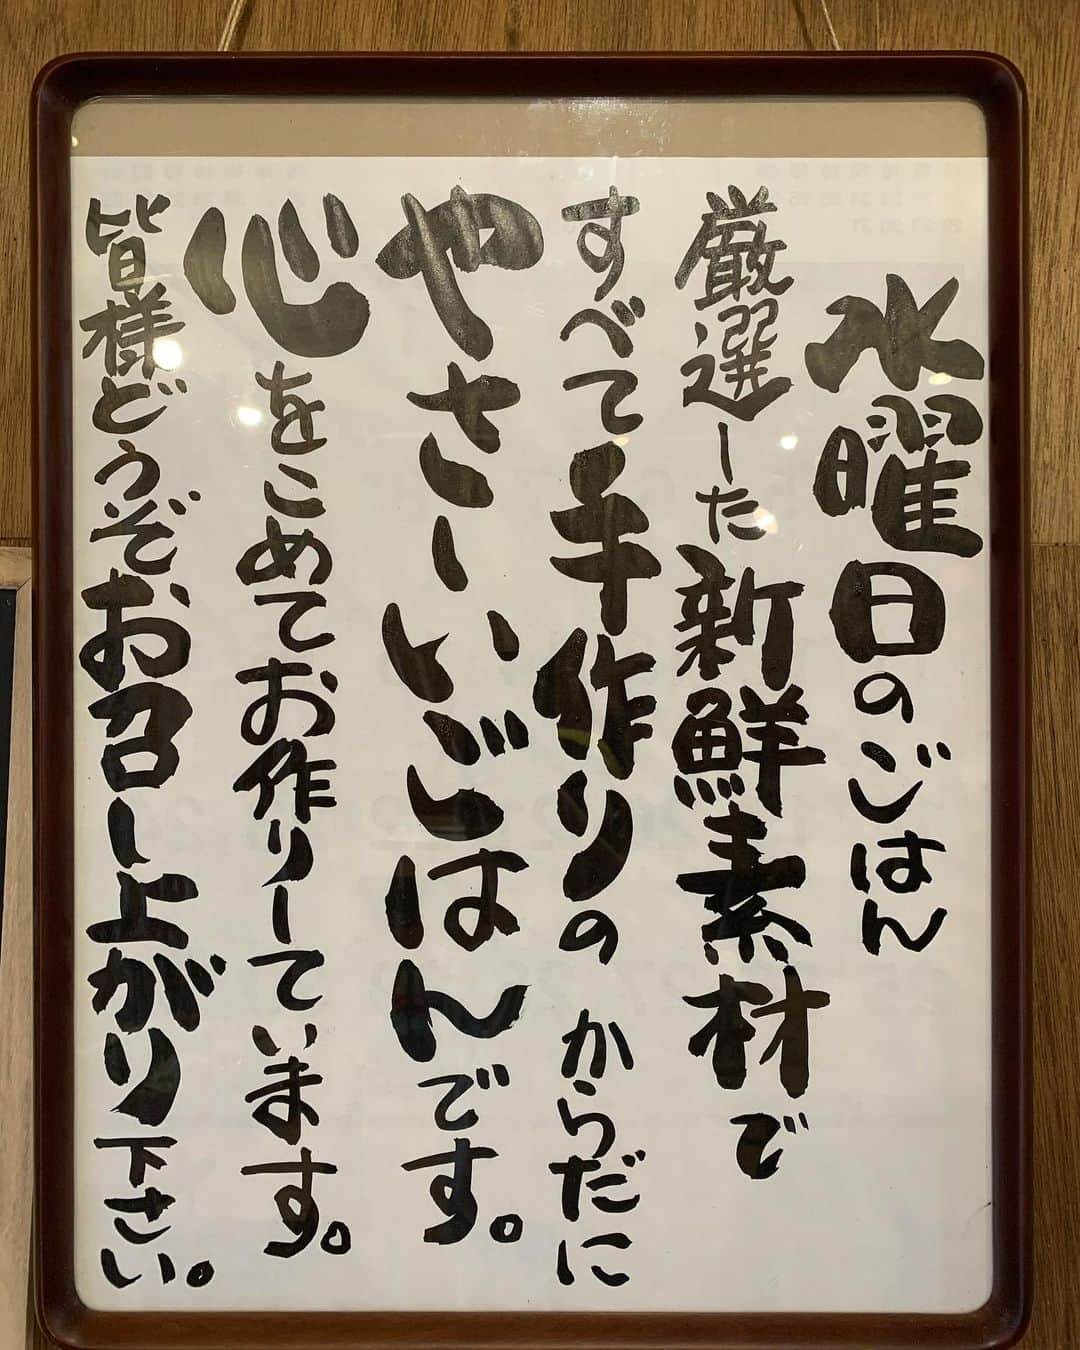 水曜日のごはん
厳選した新鮮素材で
すべて手作りの からだに
やさしいごはんです。
心をこめてお作りしています。
皆様どうぞお召し上がり下さい。